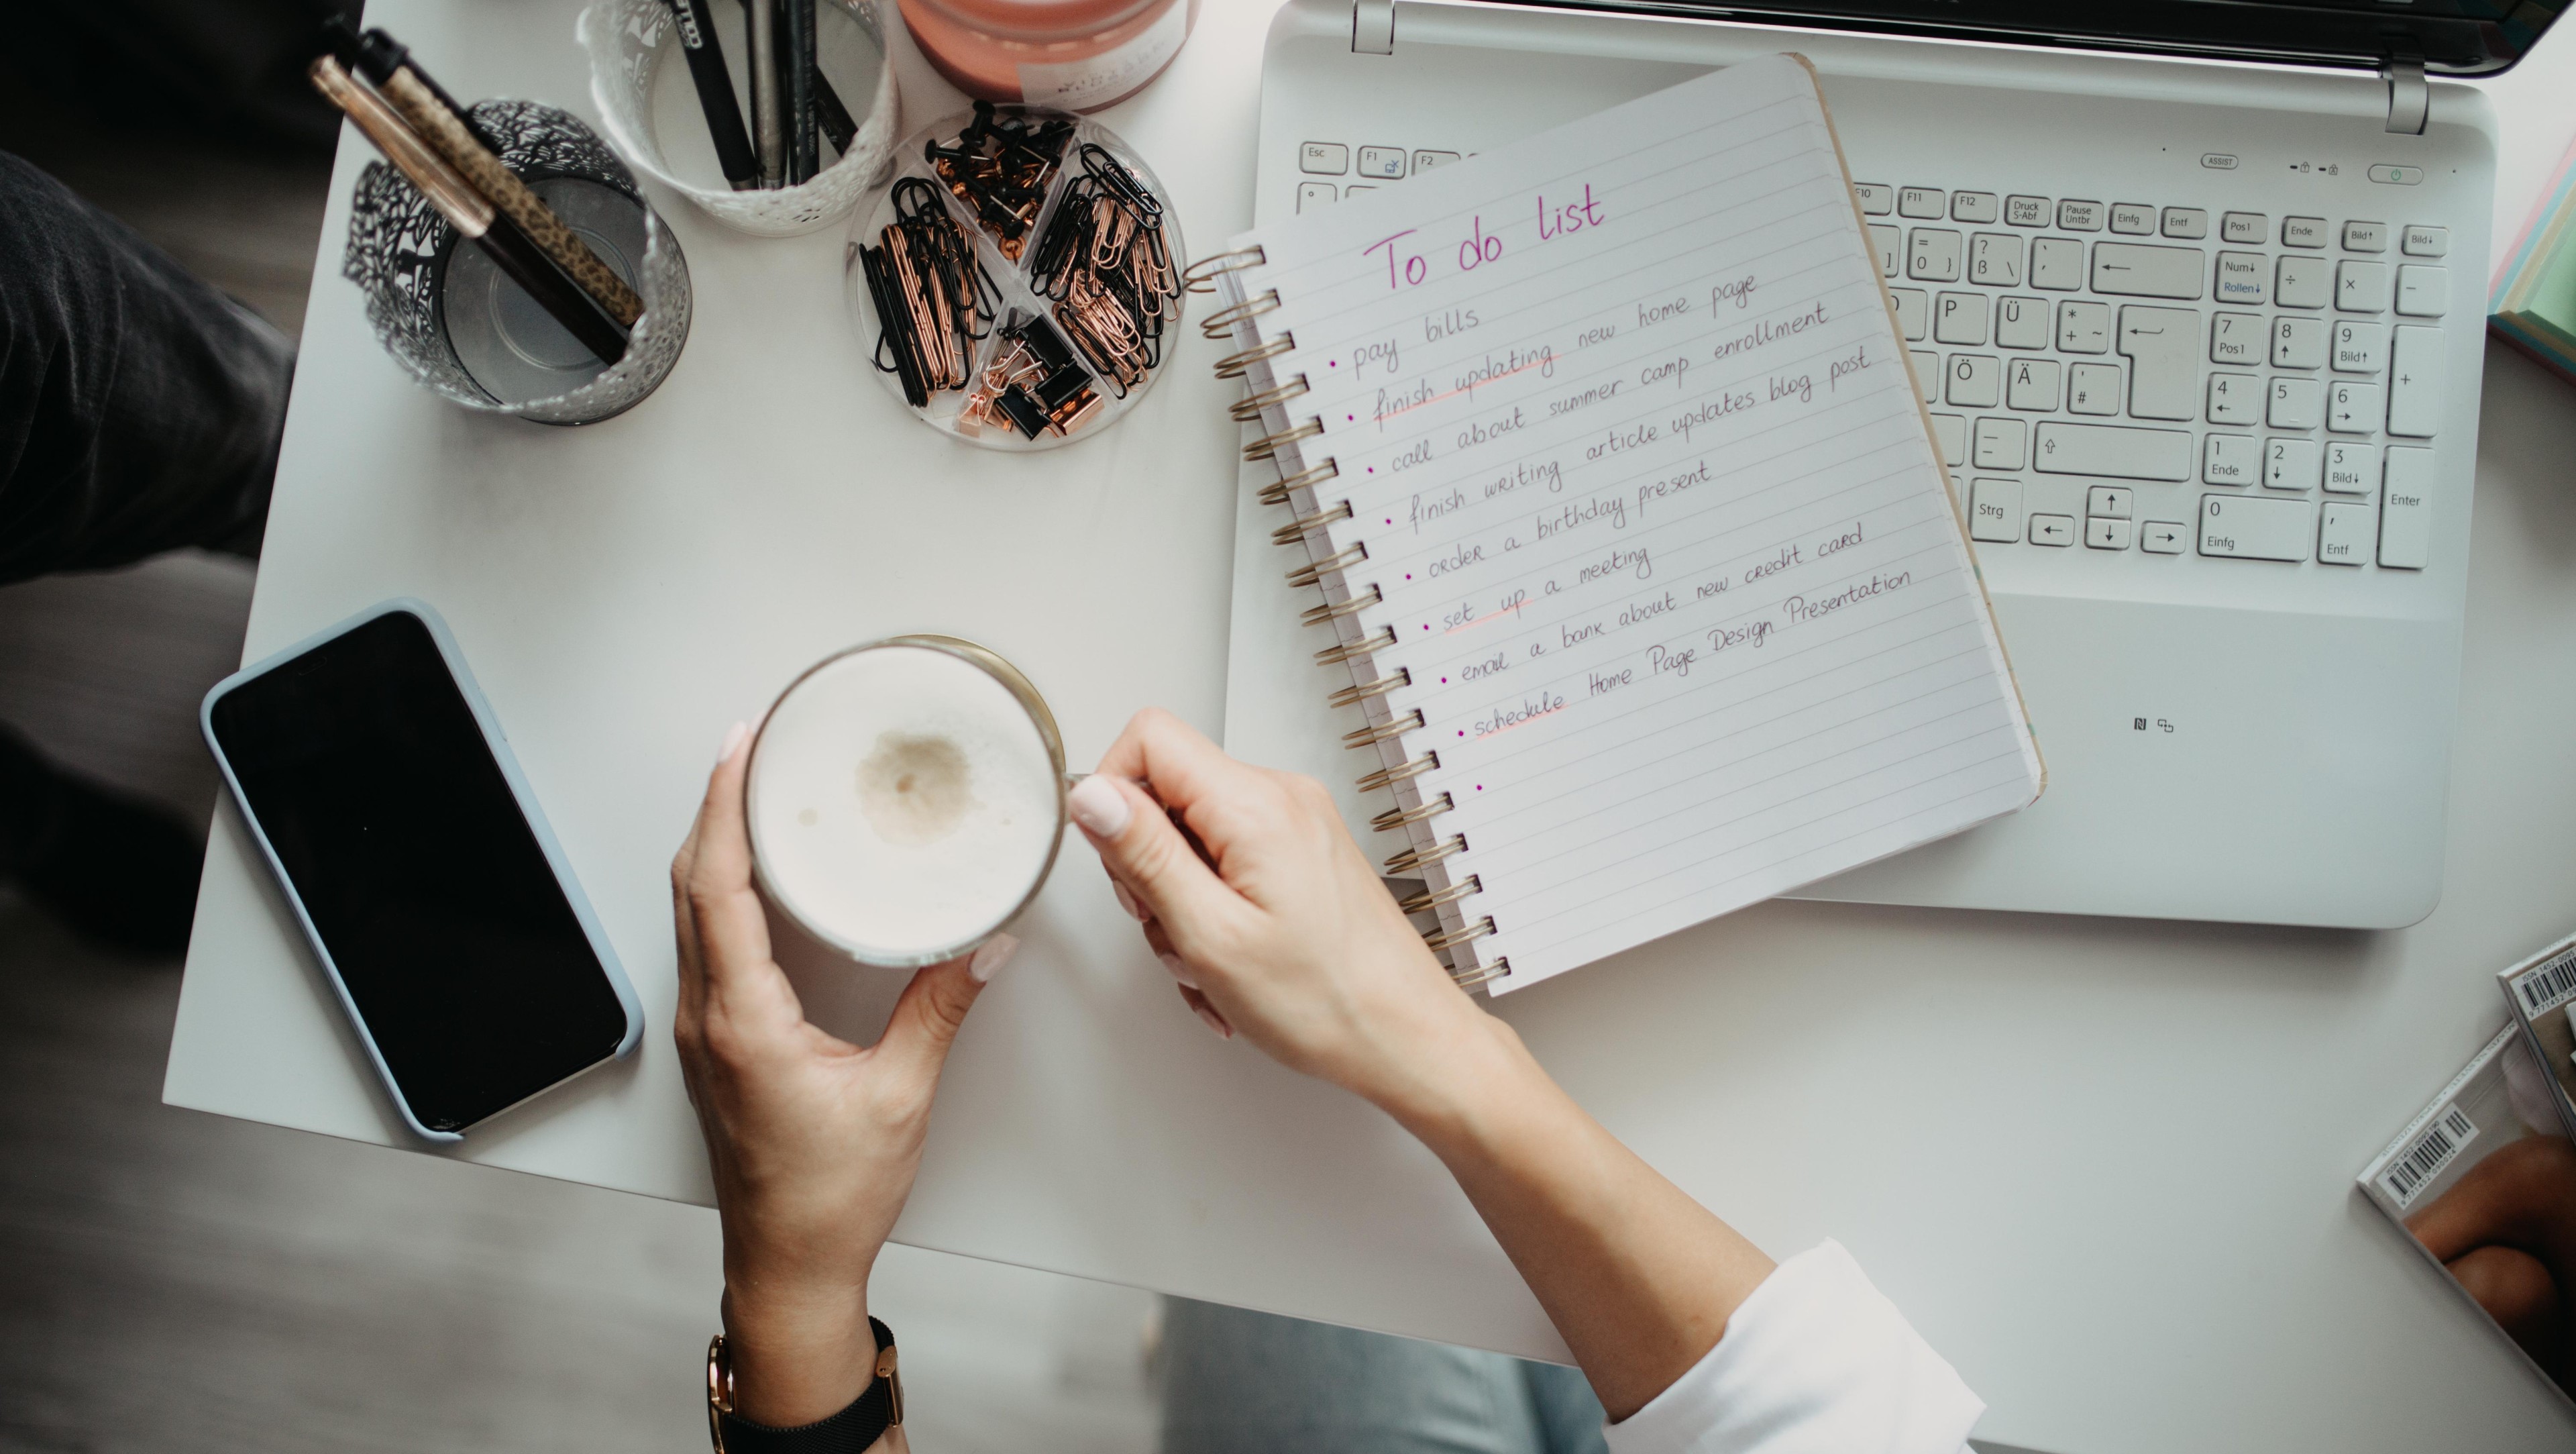 To do list
• pay bills
• finish updating new home page
• call about summer camp enrollment
• finish writing article updates blog post
• order a birthday present
• set up a meeting
• email a bank about new credit card
• schedule Home Page Design Presentation
•
Esc F1 F2
F10 F11 F12 Druck S-Abf Pause Untbr Einfg Entf Pos1 Ende Bild↑ Bild↓
ASSIST
= 0 } ? ß \ ← Num↓ Rollen↓ ÷ × −
P Ü * + ~ 7 Pos1 8 ↑ 9 Bild↑ +
Ö Ä ' # 4 ← 5 6 →
1 Ende 2 ↓ 3 Bild↓ Enter
Strg ↑ ← ↓ → 0 Einfg , Entf